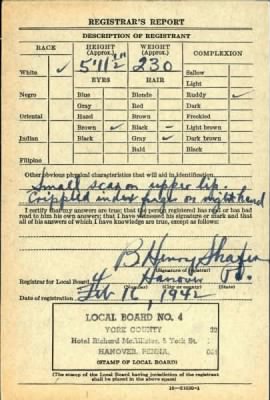 REGISTRAR'S REPORT
DESCRIPTION OF REGISTRANT
RACE HEIGHT (Approx.) WEIGHT (Approx.) COMPLEXION
White ✓ 5'11½" 230 Sallow
EYES HAIR Light
Negro Blue Blonde Ruddy ✓
Gray Red Dark
Oriental Hazel Brown Freckled
Brown ✓ Black Light brown
Indian Black Gray ✓ Dark brown
Bald Black
Filipino
Other obvious physical characteristics that will aid in identification
Small scar on upper lip.
Crippled index finger on right hand
I certify that my answers are true; that the person registered has read or has had
read to him his own answers; that I have witnessed his signature or mark and that
all of his answers of which I have knowledge are true, except as follows:
B Henry Shafer
(Signature of registrar)
Registrar for Local Board 4 Hanover Pa.
(Number) (City or county) (State)
Date of registration Feb 16, 1941
LOCAL BOARD NO. 4
YORK COUNTY
Hotel Richard McAllister, 5 York St.
HANOVER, PENNA.
(STAMP OF LOCAL BOARD)
(The stamp of the Local Board having jurisdiction of the registrant
shall be placed in the above space)